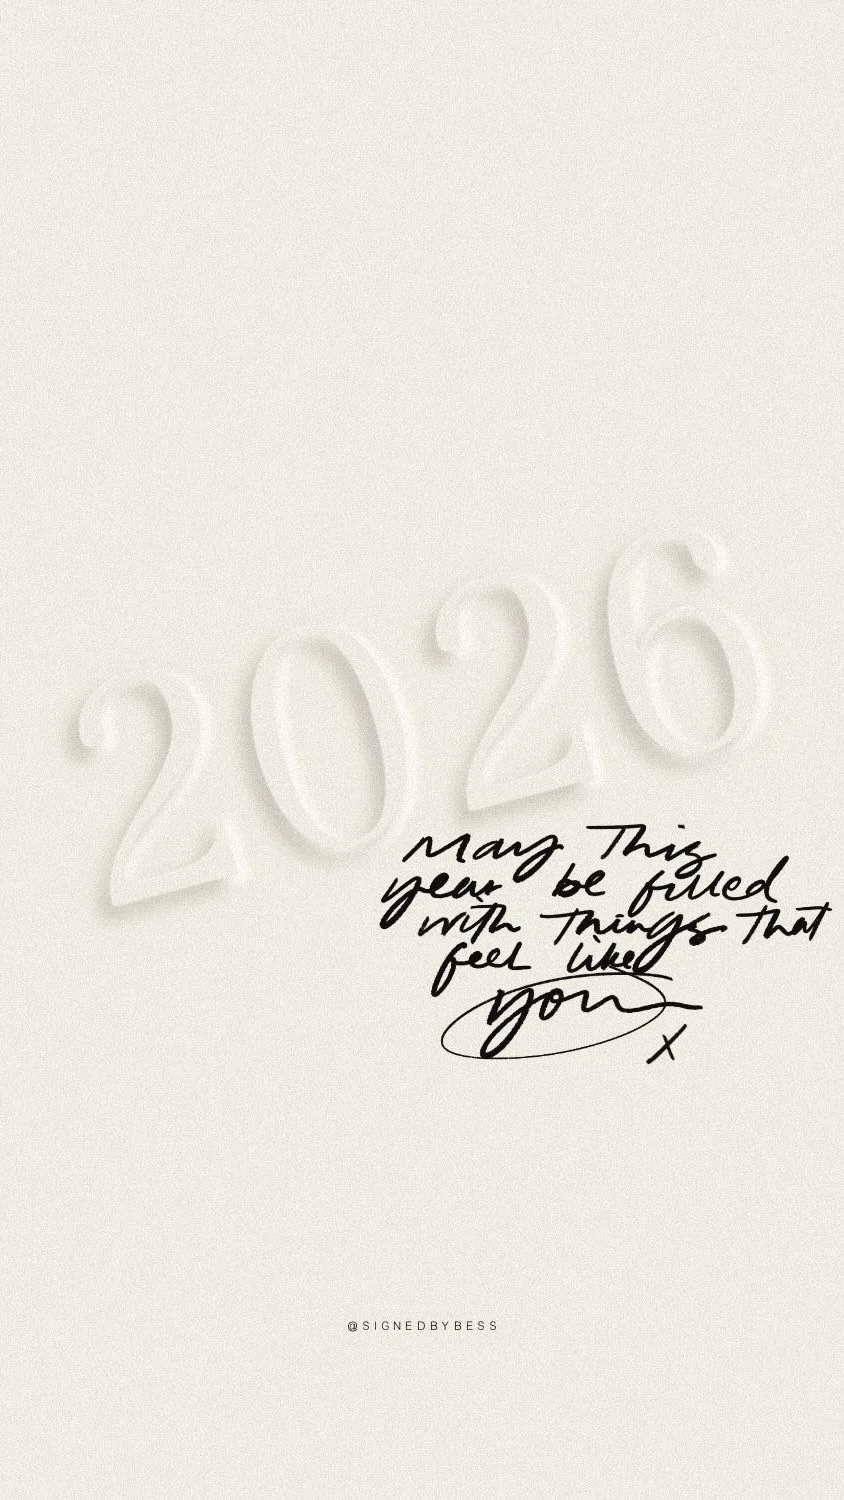 2026
May This
year be filled
with things that
feel like
you
x
@SIGNEDBYBESS